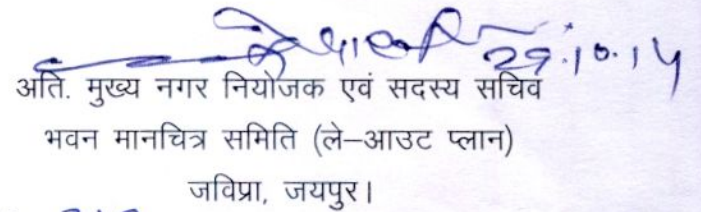 29.10.14
अति. मुख्य नगर नियोजक एवं सदस्य सचिव
भवन मानचित्र समिति (ले–आउट प्लान)
जविप्रा, जयपुर।